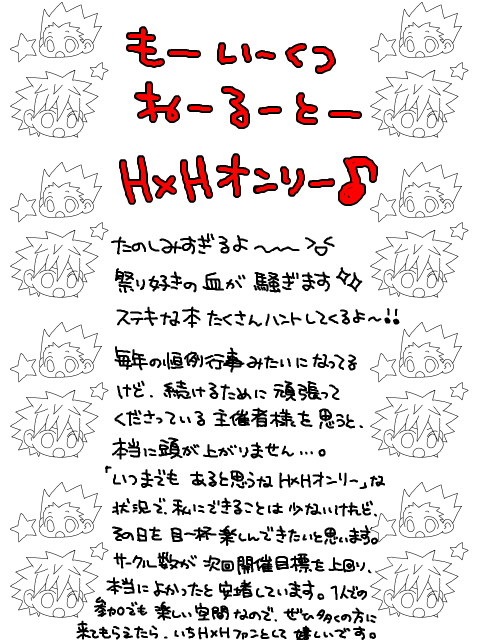 もーいーくつ
ねーるーとー
H×Hオンリー♪
たのしみすぎるよ〜〜〜
祭り好きの血が騒ぎます
ステキな本たくさんハントしてくるよ〜!!
毎年の恒例行事みたいになってる
けど、続けるために頑張って
くださっている主催者様を思うと、
本当に頭が上がりません…。
「いつまでもあると思うなH×Hオンリー」な
状況で、私にできることは少ないけれど、
その日を目一杯楽しんできたいと思います。
サークル数が次回開催目標を上回り、
本当によかったと安堵しています。1人での
参加でも楽しい空間なので、ぜひ多くの方に
来てもらえたら、いちH×Hファンとして嬉しいです。